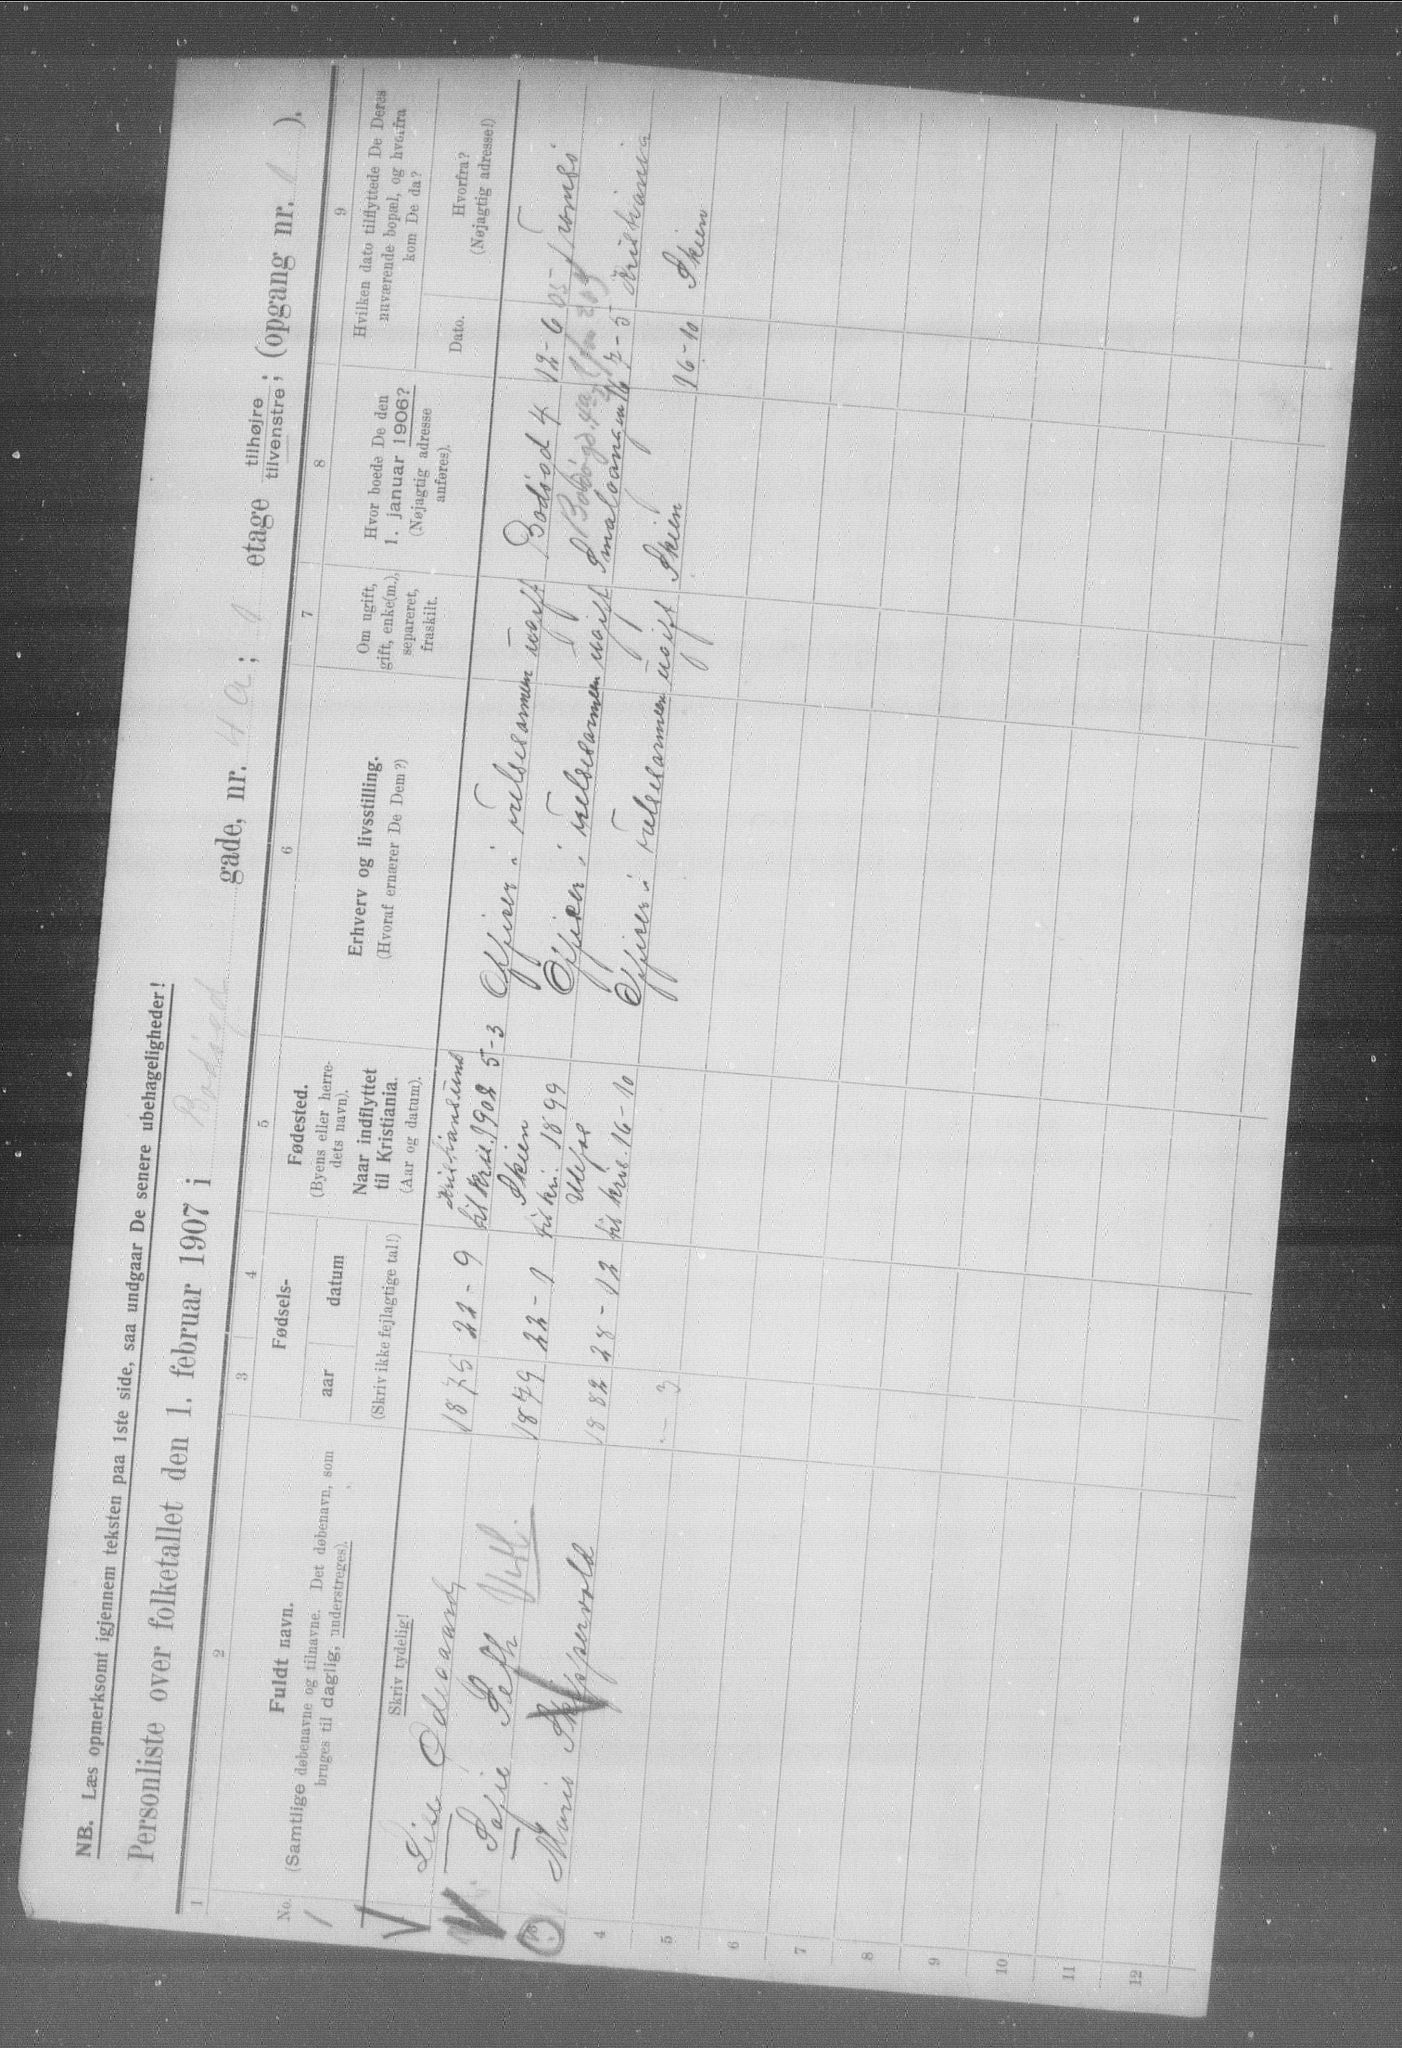 NB. Læs opmerksomt igjennem teksten paa 1ste side, saa undgaar De senere ubehageligheder!
Personliste over folketallet den 1. februar 1907 i Bodøgd gade, nr. 4 a; 1 etage tilhøjre, tilvenstre; (opgang nr. 1 ).
1 2 3 4 5 6 7 8 9
No.
Fuldt navn.
(Samtlige døbenavne og tilnavne. Det døbenavn, som
bruges til daglig, understreges).
Skriv tydelig!
Fødsels-
aar datum
(Skriv ikke fejlagtige tal!)
Fødested.
(Byens eller herre-
dets navn).
Naar indflyttet
til Kristiania.
(Aar og datum).
Erhverv og livsstilling.
(Hvoraf ernærer De Dem?)
Om ugift,
gift, enke(m.),
separeret,
fraskilt.
Hvor boede De den
1. januar 1906?
(Nøjagtig adresse
anføres).
Hvilken dato tilflyttede De Deres
nuværende bopæl, og hvorfra
kom De da?
Dato.
Hvorfra?
(Nøjagtig adresse!)
1875 22-9 Kristiansund
til Kria. 1902 5-3 Officer i Frelsesarmeen ugift Bodøgd 4 12-6 05- Tromsø
1879 22-1 Skien
til Kri. 1899 Officer i Frelsesarmeen ugift 7-5 Kristiania
Marie
1882 28-12 Ulefos
til Kria. 16-10 Officer i Frelsesarmeen ugift Skien 16-10 Skien
3
4
5
6
7
8
9
10
11
12